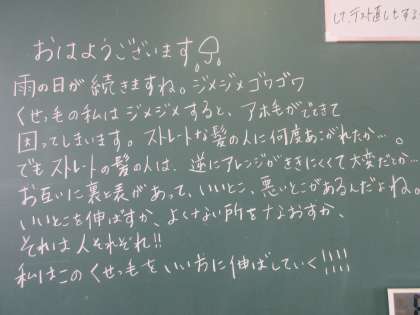 して、テスト直しをする
おはようございます
雨の日が続きますね。ジメジメゴワゴワ
くせっ毛の私はジメジメすると、アホ毛がでてきて
困ってしまいます。ストレートな髪の人に何度あこがれたか…。
でもストレートの髪の人は、逆にアレンジがききにくくて大変だとか…
お互いに裏と表があって、いいとこ、悪いとこがあるんだよね。
いいとこを伸ばすか、よくない所をなおすか、
それは人それぞれ!!
私はこのくせっ毛をいい方に伸ばしていく!!!!